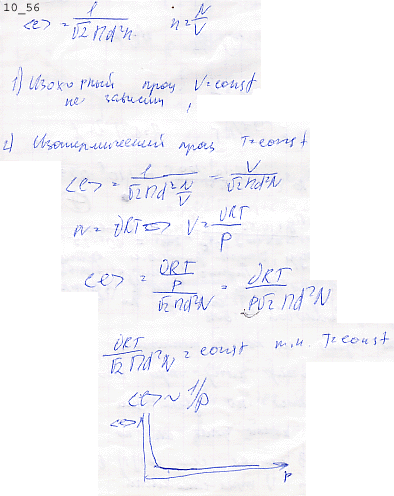 10_56
<e> = 1/(√2 Пd²n) n = N/V
1) Изохорный проц V=const
не зависит,
2) Изотермический проц T=const
<e> = 1/(√2 Пd² N/V) = V/(√2 Пd²N)
PV = νRT => V = νRT/P
<e> = (νRT/P)/(√2 Пd²N) = νRT/(P√2 Пd²N)
νRT/(√2 Пd²N) = const т.к. T=const
<e> ~ 1/p
<e>
P